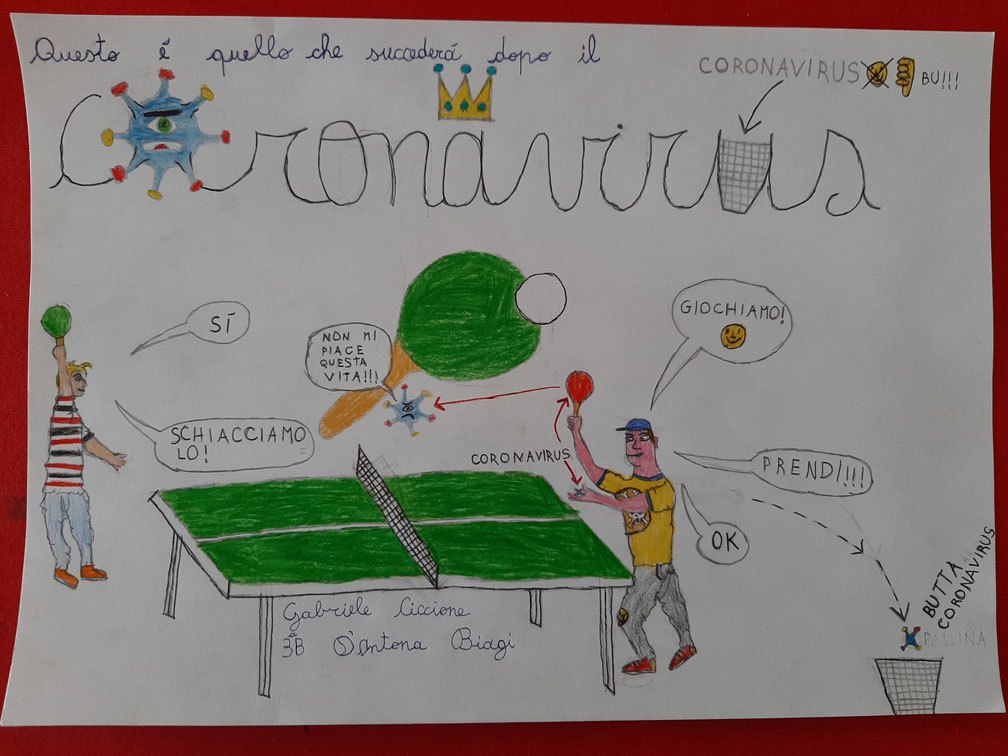 Questo é quello che succederá dopo il
Coronavirus
CORONAVIRUS
BU!!!
SÍ
NON MI
PIACE
QUESTA
VITA!!!
GIOCHIAMO!
SCHIACCIAMO
LO!
CORONAVIRUS
PRENDI!!!!
OK
BUTTA
CORONAVIRUS
PALLINA
Gabriele Ciccione
3ªB D'Antona Biagi